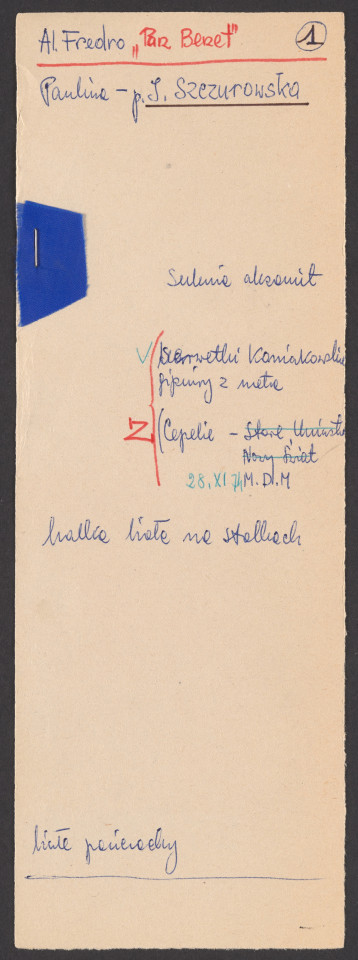 Al. Fredro „Pan Benet" 1
Paulina – p. J. Szczurowska
Suknia aksamit
V serwetki Koniakowskie
gipiury z metra
Z (Cepelia – Stare Miasto
Nowy Świat
28.XI M.D.M
halka biała na stalkach
białe pończochy